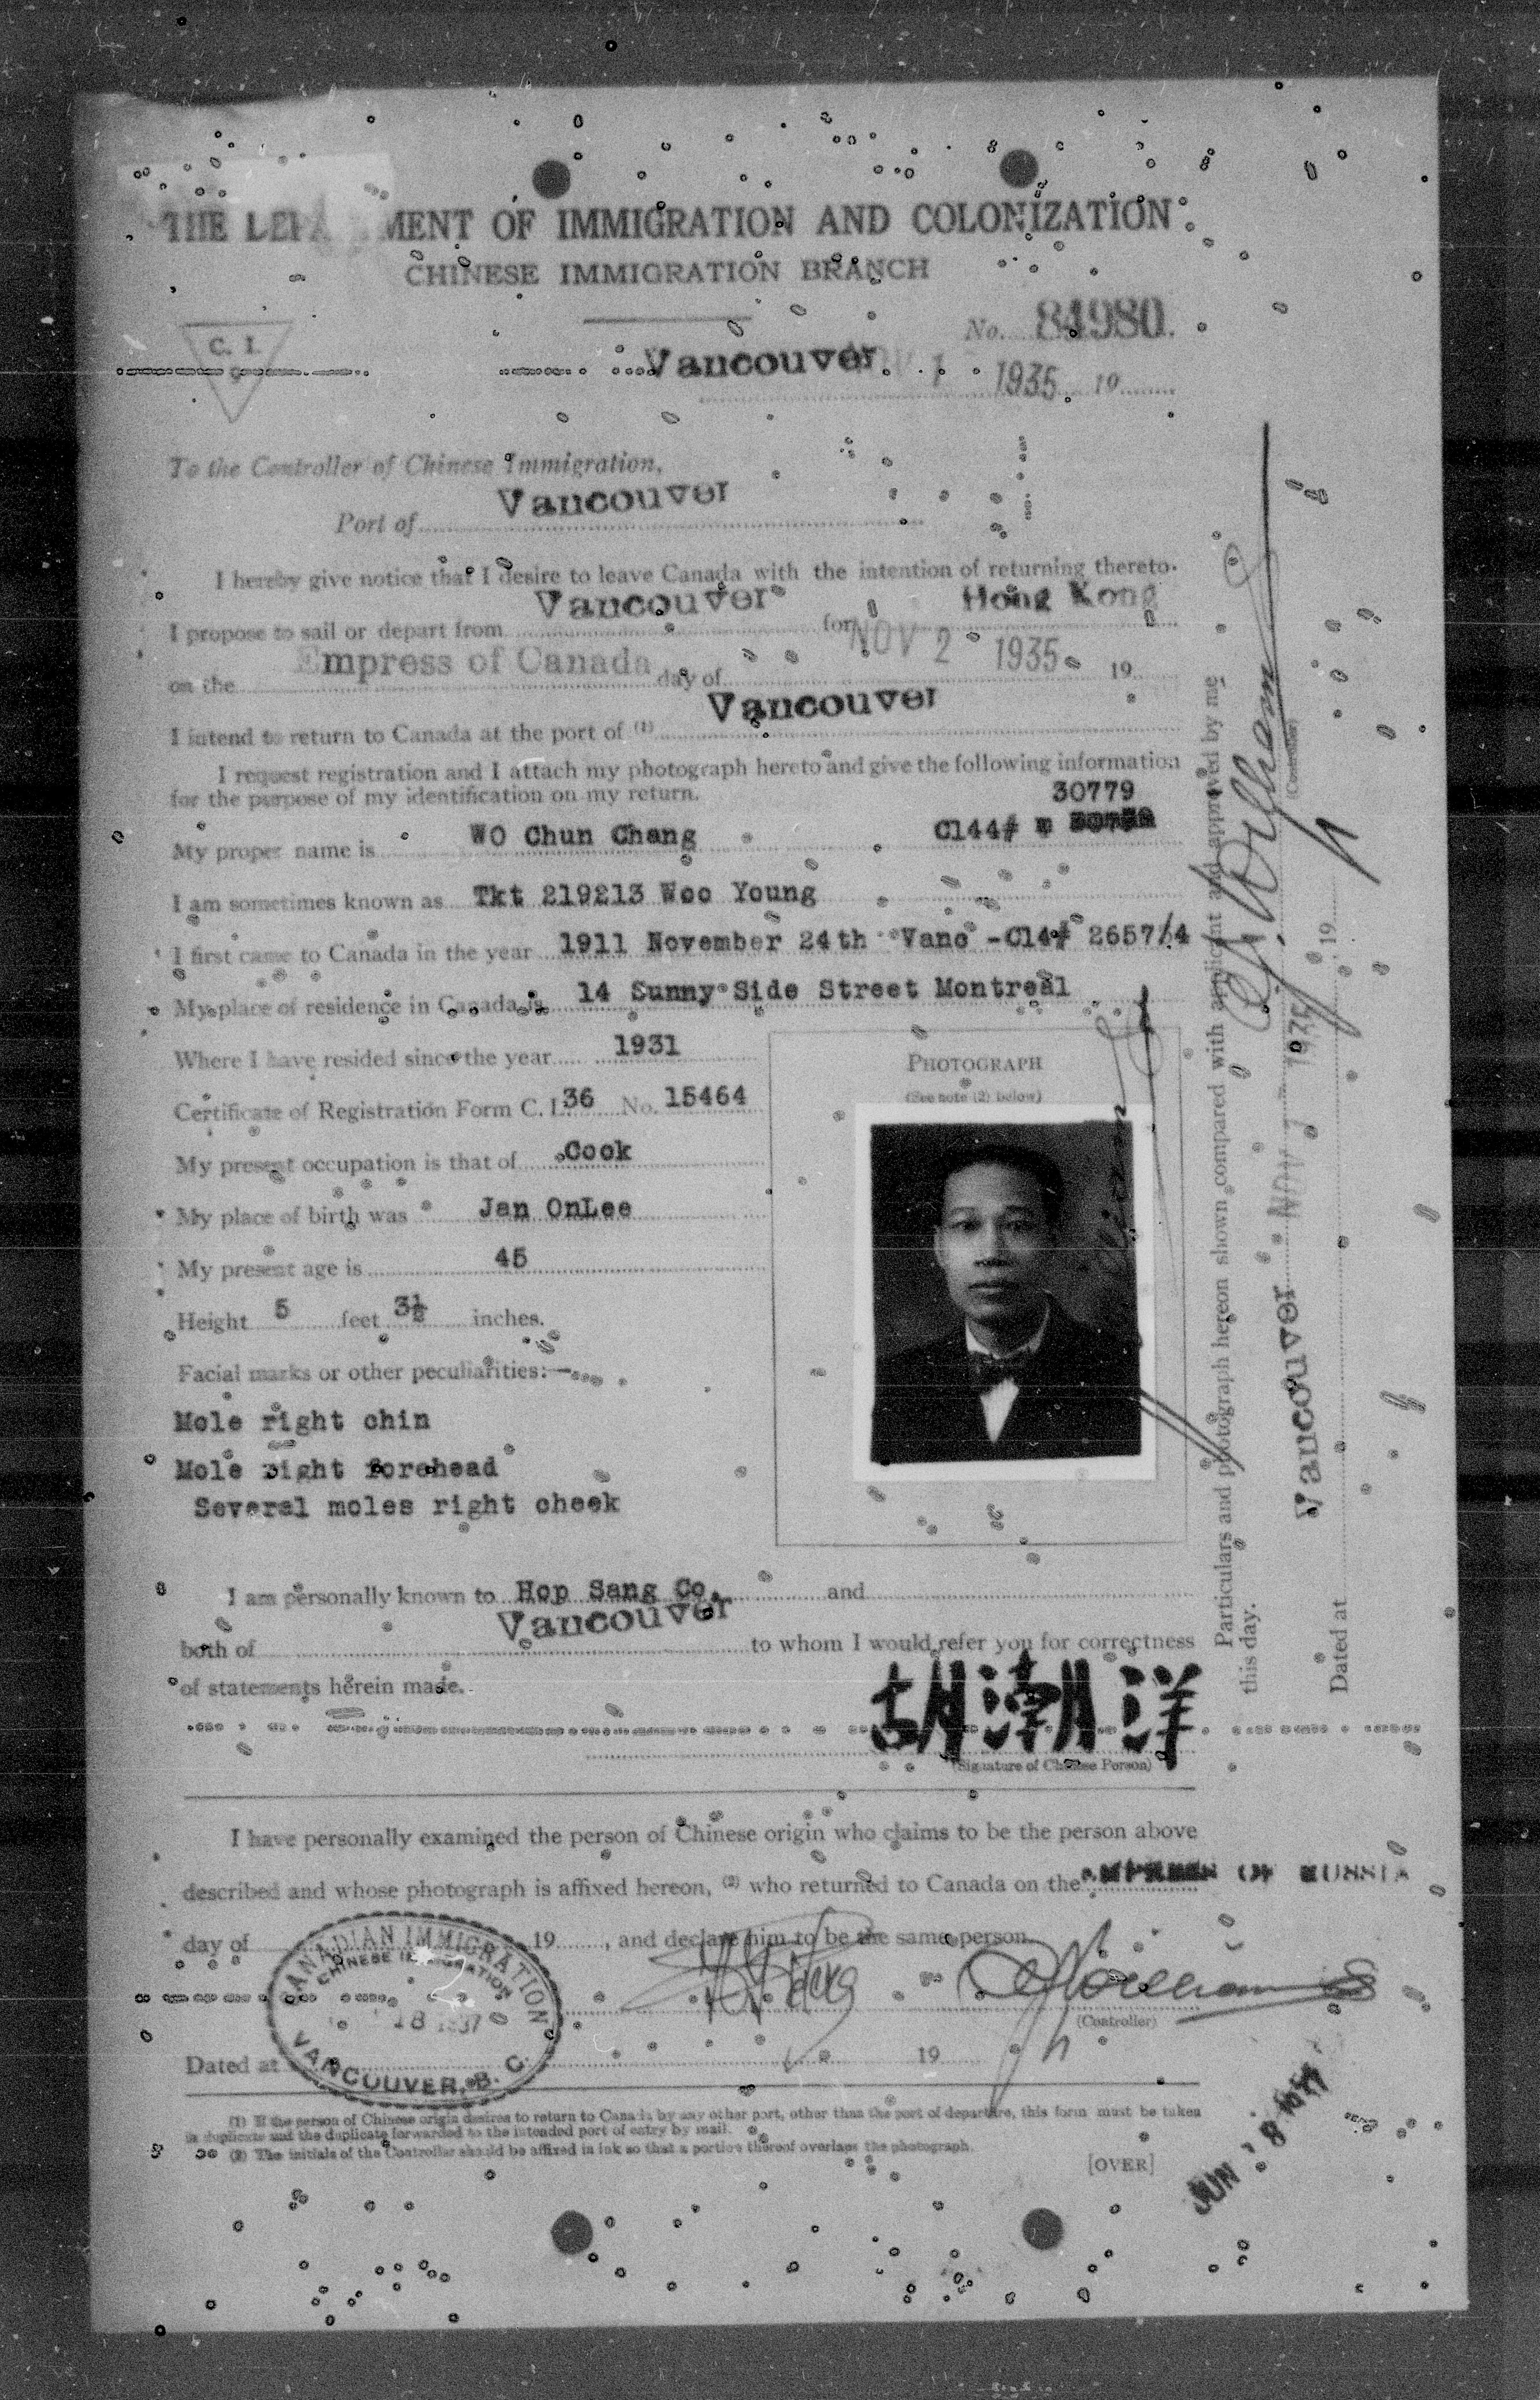 THE DEPARTMENT OF IMMIGRATION AND COLONIZATION
CHINESE IMMIGRATION BRANCH
No. 84980.
C. I.
9
Vancouver NOV 1 1935 19
To the Controller of Chinese Immigration,
Port of Vancouver
I hereby give notice that I desire to leave Canada with the intention of returning thereto.
I propose to sail or depart from Vancouver for Hong Kong
on the Empress of Canada day of NOV 2 1935 19
I intend to return to Canada at the port of (1) Vancouver
I request registration and I attach my photograph hereto and give the following information
for the purpose of my identification on my return.
30779
My proper name is WO Chun Chang C144#
I am sometimes known as Tkt 219213 Woo Young
I first came to Canada in the year 1911 November 24th Vanc -C14# 2657/4
My place of residence in Canada is 14 Sunny Side Street Montreal
Where I have resided since the year 1931
Certificate of Registration Form C. I. 36 No. 15464
My present occupation is that of Cook
My place of birth was Jan OnLee
My present age is 45
Height 5 feet 3½ inches.
Facial marks or other peculiarities:—
Mole right chin
Mole right forehead
Several moles right cheek
PHOTOGRAPH
(See note (2) below)
I am personally known to Hop Sang Co. and
both of Vancouver to whom I would refer you for correctness
of statements herein made.
胡潮洋
(Signature of Chinese Person)
I have personally examined the person of Chinese origin who claims to be the person above
described and whose photograph is affixed hereon, (2) who returned to Canada on the EMPRESS OF RUSSIA
day of 19 , and declare him to be the same person.
CANADIAN IMMIGRATION
CHINESE IMMIGRATION
18 1937
VANCOUVER, B. C.
(Controller)
Dated at 19
(1) If the person of Chinese origin desires to return to Canada by any other port, other than the port of departure, this form must be taken
in duplicate and the duplicate forwarded to the intended port of entry by mail.
(2) The initials of the Controller should be affixed in ink so that a portion thereof overlaps the photograph.
[OVER]
JUN 18 1937
Particulars and photograph hereon shown compared with applicant and approved by me
this day.
(Controller)
Vancouver NOV 1 1935
Dated at 19